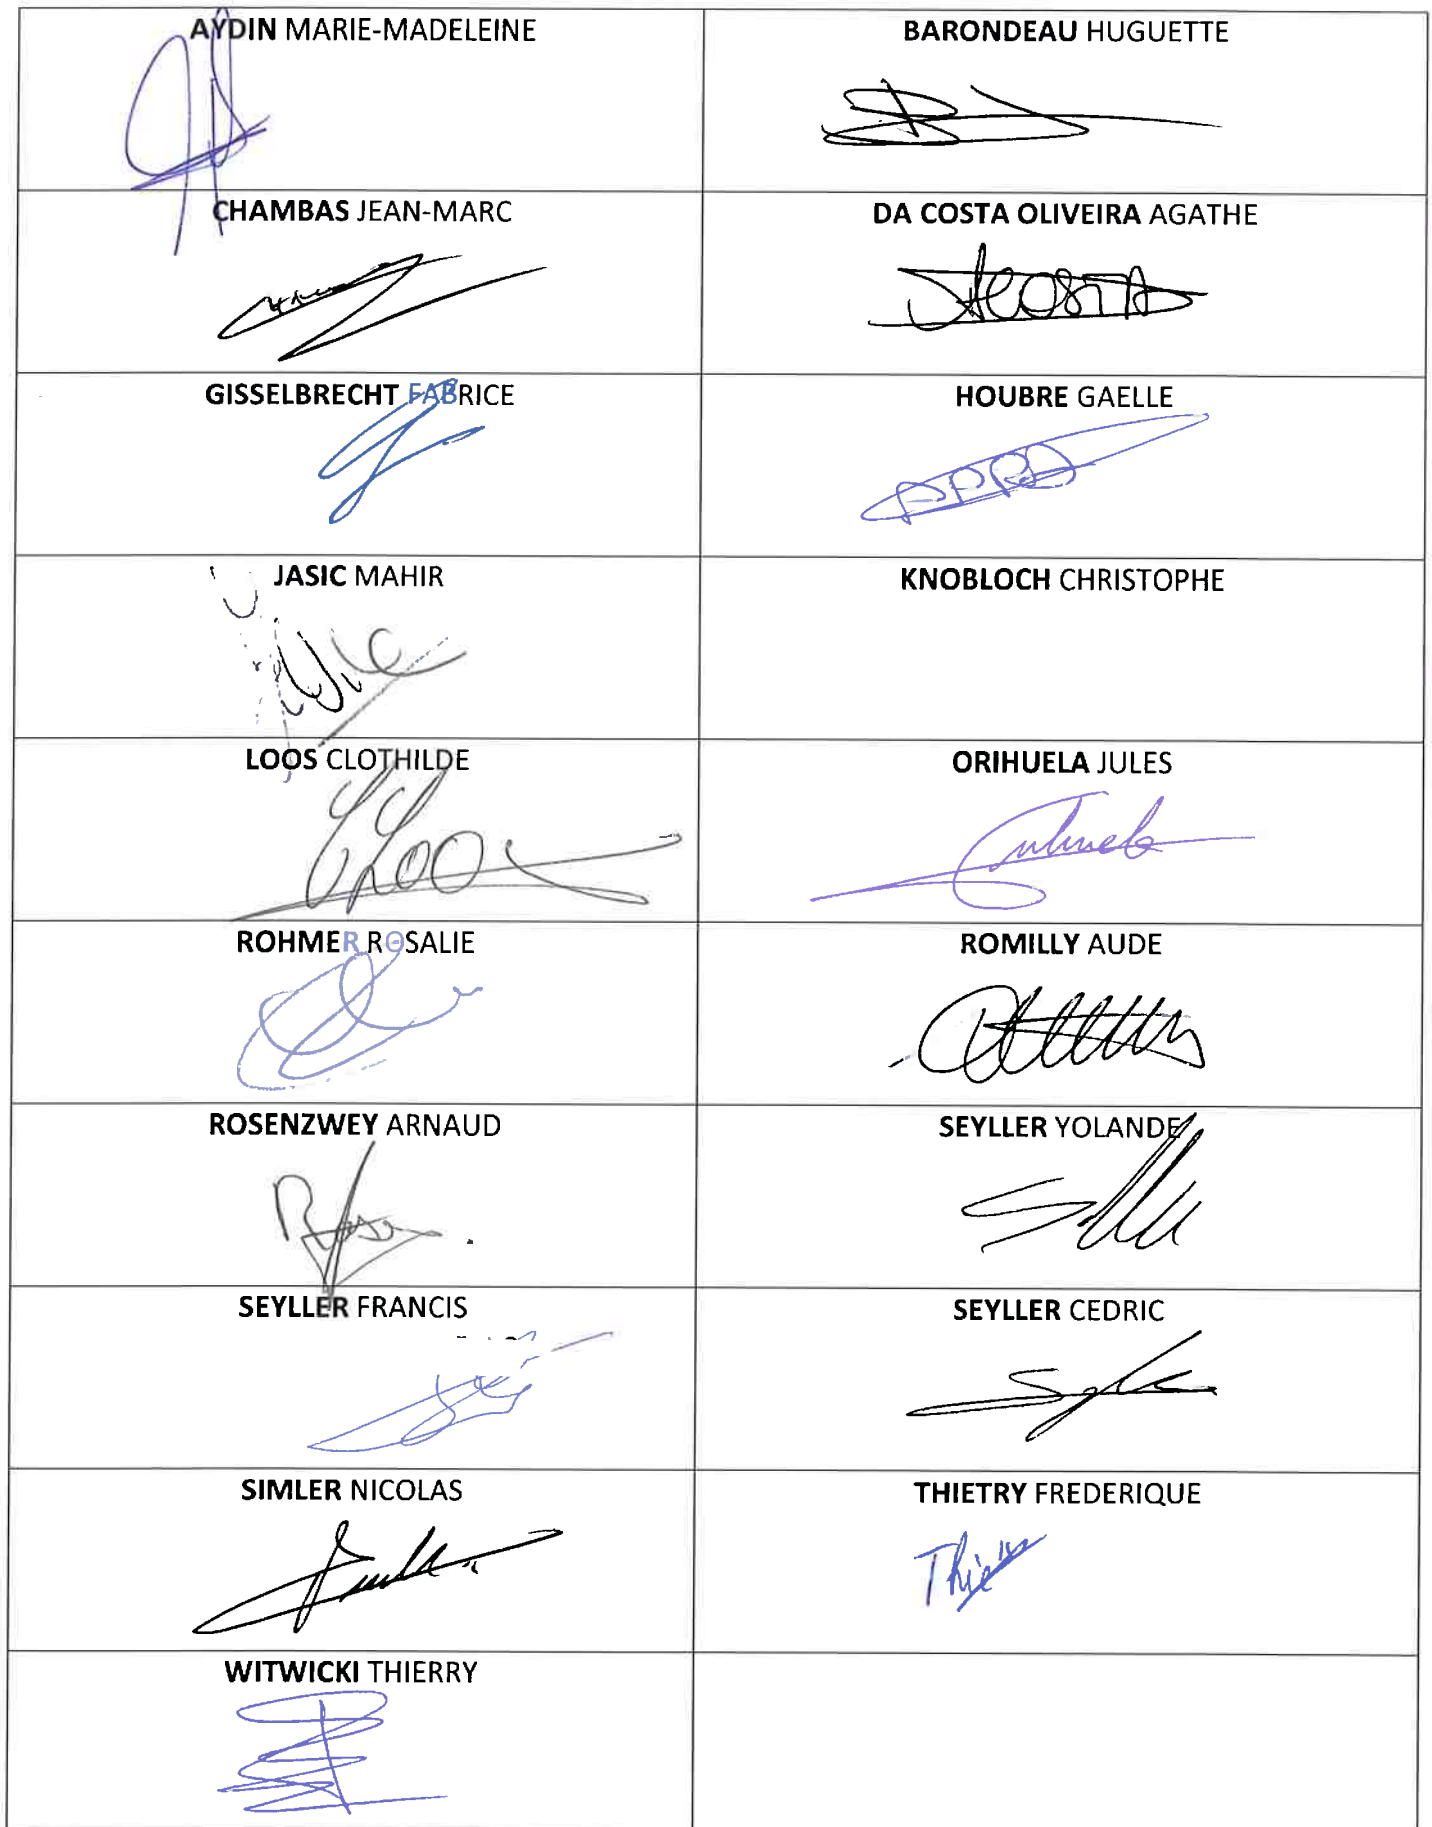 AYDIN MARIE-MADELEINE
BARONDEAU HUGUETTE
CHAMBAS JEAN-MARC
DA COSTA OLIVEIRA AGATHE
GISSELBRECHT FABRICE
HOUBRE GAELLE
JASIC MAHIR
KNOBLOCH CHRISTOPHE
LOOS CLOTHILDE
ORIHUELA JULES
ROHMER ROSALIE
ROMILLY AUDE
ROSENZWEY ARNAUD
SEYLLER YOLANDE
SEYLLER FRANCIS
SEYLLER CEDRIC
SIMLER NICOLAS
THIETRY FREDERIQUE
WITWICKI THIERRY